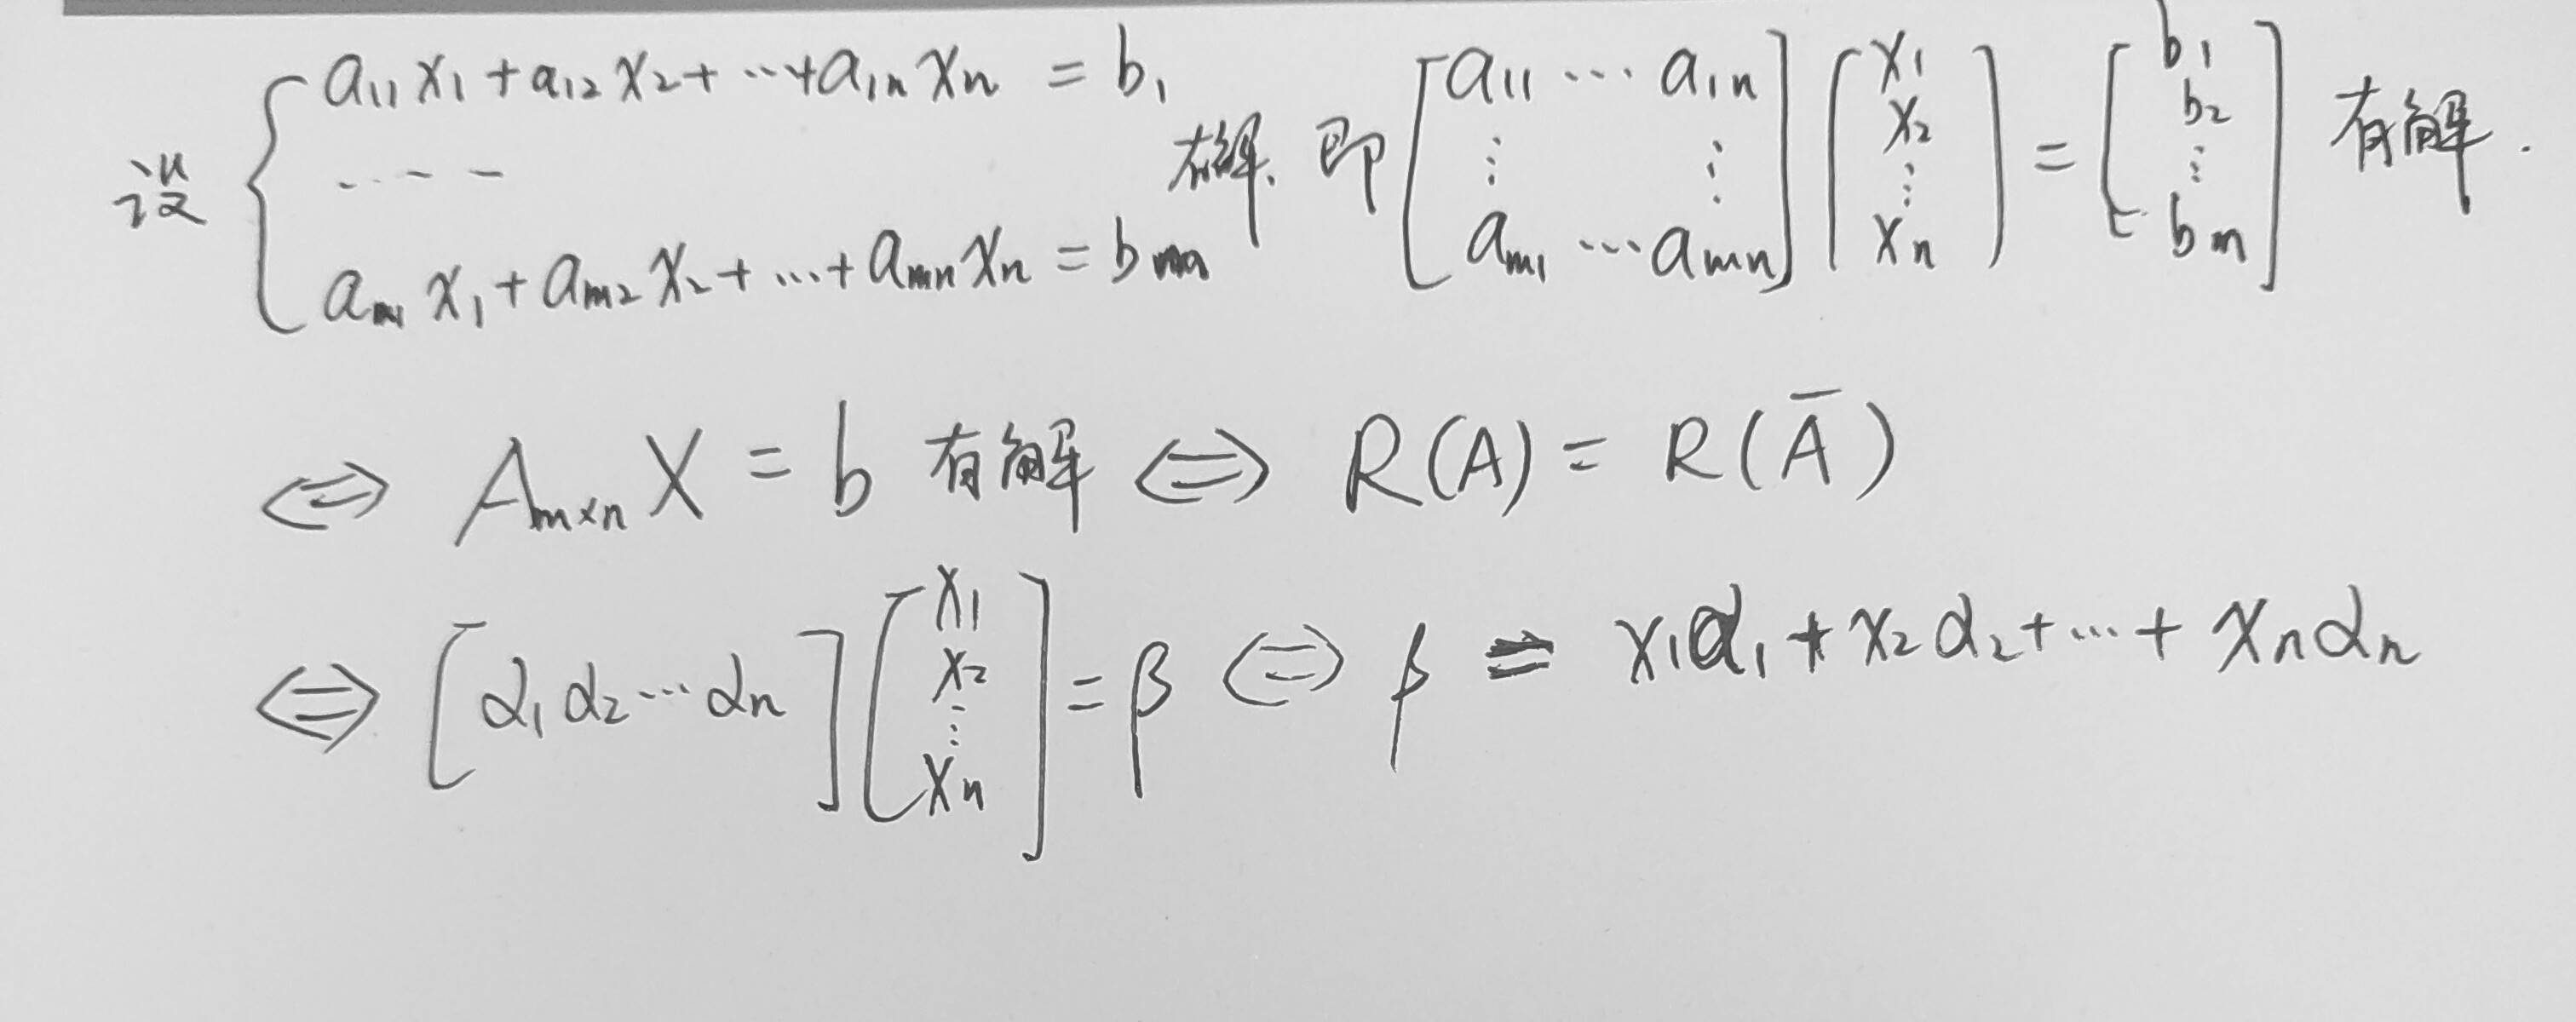 设 { a₁₁x₁ + a₁₂x₂ + ⋯ + a₁ₙxₙ = b₁
⋯⋯
aₘ₁x₁ + aₘ₂x₂ + ⋯ + aₘₙxₙ = bₘ 有解. 即 [a₁₁ ⋯ a₁ₙ ⋮ ⋮ aₘ₁ ⋯ aₘₙ] [x₁ x₂ ⋮ xₙ] = [b₁ b₂ ⋮ bₘ] 有解.
⟺ Aₘₓₙ X = b 有解 ⟺ R(A) = R(Ā)
⟺ [α₁ α₂ ⋯ αₙ] [x₁ x₂ ⋮ xₙ] = β ⟺ β = x₁α₁ + x₂α₂ + ⋯ + xₙαₙ